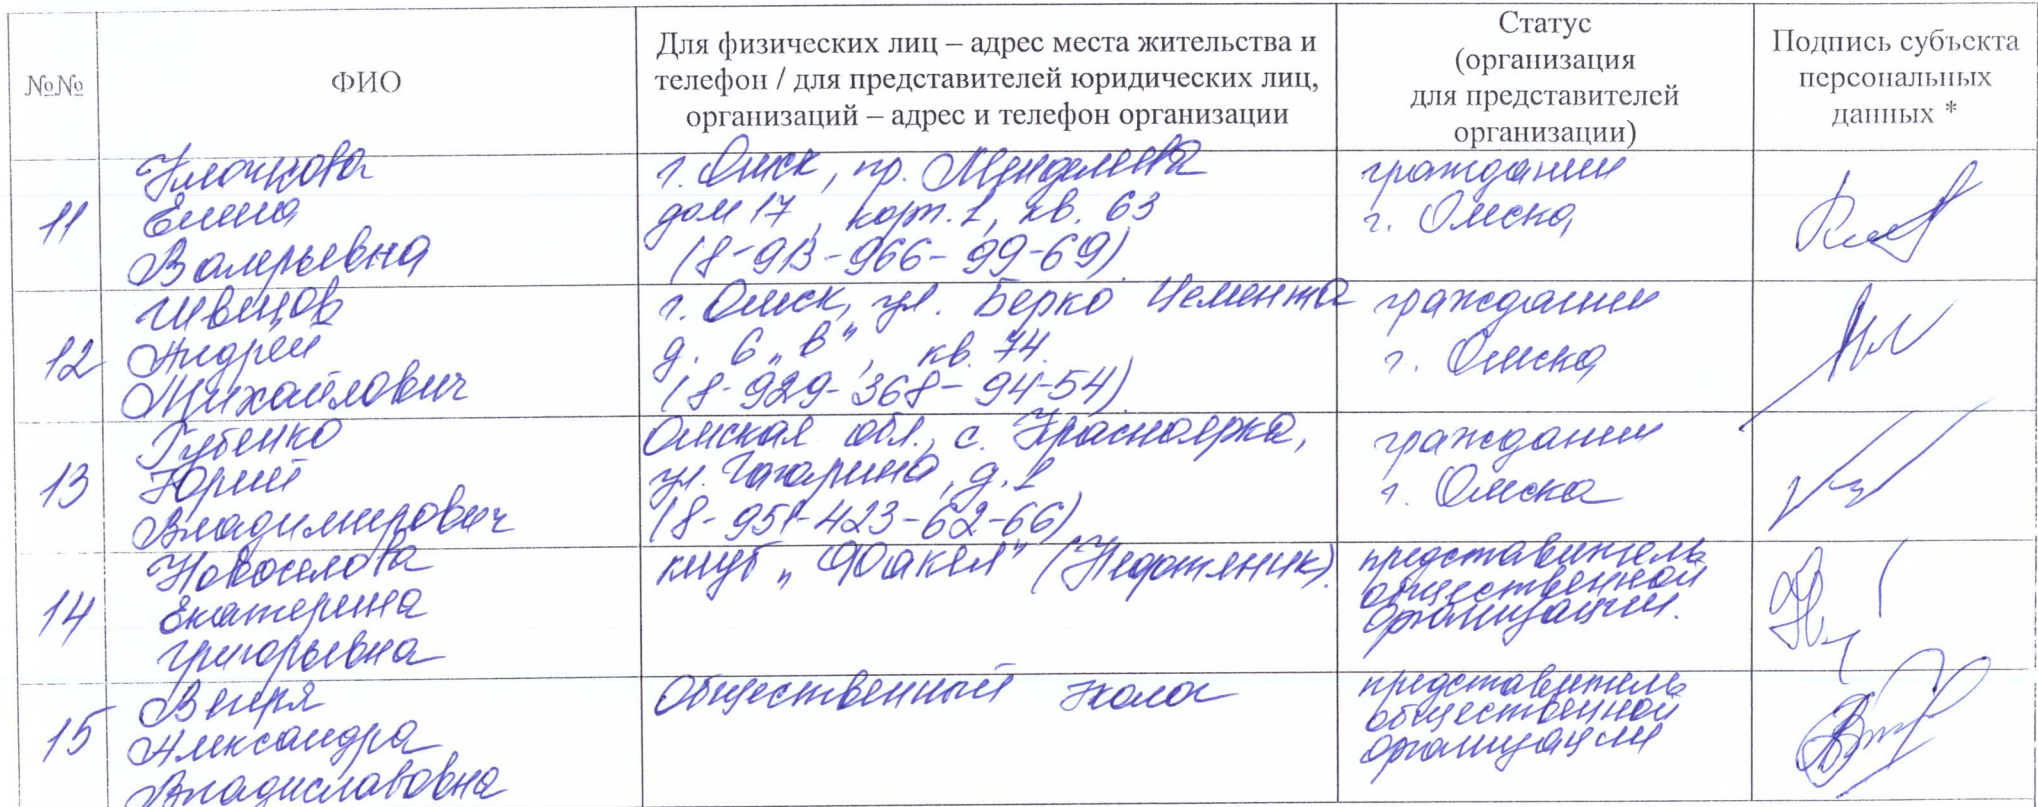 №№
ФИО
Для физических лиц – адрес места жительства и
телефон / для представителей юридических лиц,
организаций – адрес и телефон организации
Статус
(организация
для представителей
организации)
Подпись субъекта
персональных
данных *
11
Клочкова
Елена
Валерьевна
г. Омск, пр. Менделеева
дом 17, корп. 1, кв. 63
(8-913-966-99-69)
гражданин
г. Омска
12
Швецов
Андрей
Михайлович
г. Омск, ул. Берко Цемента
д. 6 „в", кв. 74.
(8-929-368-94-54)
гражданин
г. Омска
13
Губенко
Юрий
Владимирович
Омская обл., с. Красноярка,
ул. Гагарина, д. 1
(8-951-423-62-66)
гражданин
г. Омска
14
Новоселова
Екатерина
Григорьевна
клуб „Факел" (Нефтяник).
представитель
общественной
организации.
15
Вегря
Александра
Владиславовна
Общественный эколог
представитель
общественной
организации